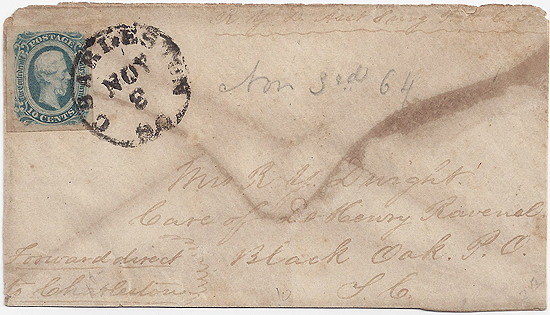 POSTAGE
TEN CENTS
CHARLESTON
NOV
3
SC
Nov 3rd 64
Mrs R. Y. Dwight.
Care of Dr Henry Ravenel
Black Oak. P. O.
S. C.
Forward direct
to Charleston